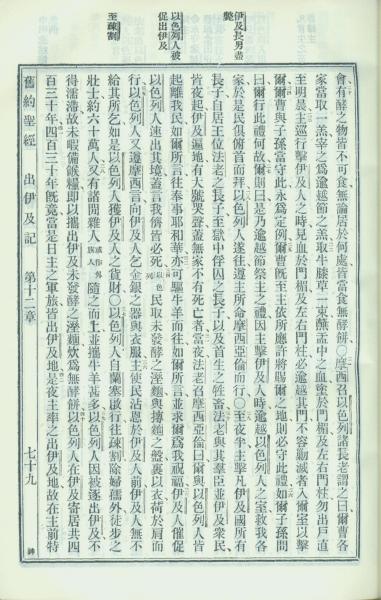 伊及長男盡斃
以色列人被促出伊及
至疎割
會有酵之物皆不可食無論居於何處皆當食無酵餅○摩西召以色列諸長老謂之曰爾曹各
家當取一羔宰之爲逾越節之羔取牛膝草一束蘸盂中之血塗於門楣及左右門柱勿出戶直
至明晨主巡行擊伊及人之時見血於門楣及左右門柱必逾越其門不容勦滅者入爾室以擊
爾爾曹與子孫當守此永爲定例爾曹旣至主依所應許將賜爾之地則必守此禮如爾子孫問
曰爾行此禮何故爾則曰是乃逾越節祭主之禮因主擊伊及人時逾越以色列人之室救我各
家於是民俱俯首而拜以色列人遂往遵主所命摩西亞倫而行○至夜半主擊凡伊及國所有
長子自居王位法老之長子至獄中俘囚之長子以及首生之牲畜法老與其羣臣並伊及衆民
皆夜起伊及遍地有大號哭聲蓋無家不有死亡者當夜法老召摩西亞倫曰爾與以色列人皆
起離我民如爾所言往奉事耶和華亦可驅牛羊而往如爾所言並求爾爲我祝福伊及人催促
以色列人速出其境蓋言我儕皆必死以色列民取未發酵之溼麵與摶麵之盤裹以衣荷於肩而
行以色列人又遵摩西言向伊及人乞金銀之器與衣服主使民沾恩於伊及人前伊及人無不
給其所乞如是以色列人獲伊及人之貨財○以色列人自蘭塞啟行往疎割除婦孺外徒步之
壯士約六十萬人又有諸閒雜人或作外族人隨之而上並攜牛羊甚多以色列人因被逐出伊及不
得濡滯故未暇備餱糧卽以攜出伊及未發酵之溼麵炊爲無酵餅以色列人在伊及寄居共四
百三十年四百三十年旣竟當是日主之軍旅皆出伊及地是夜主率之出伊及地故在主前特
舊約聖經 出伊及記 第十二章 七十九 神